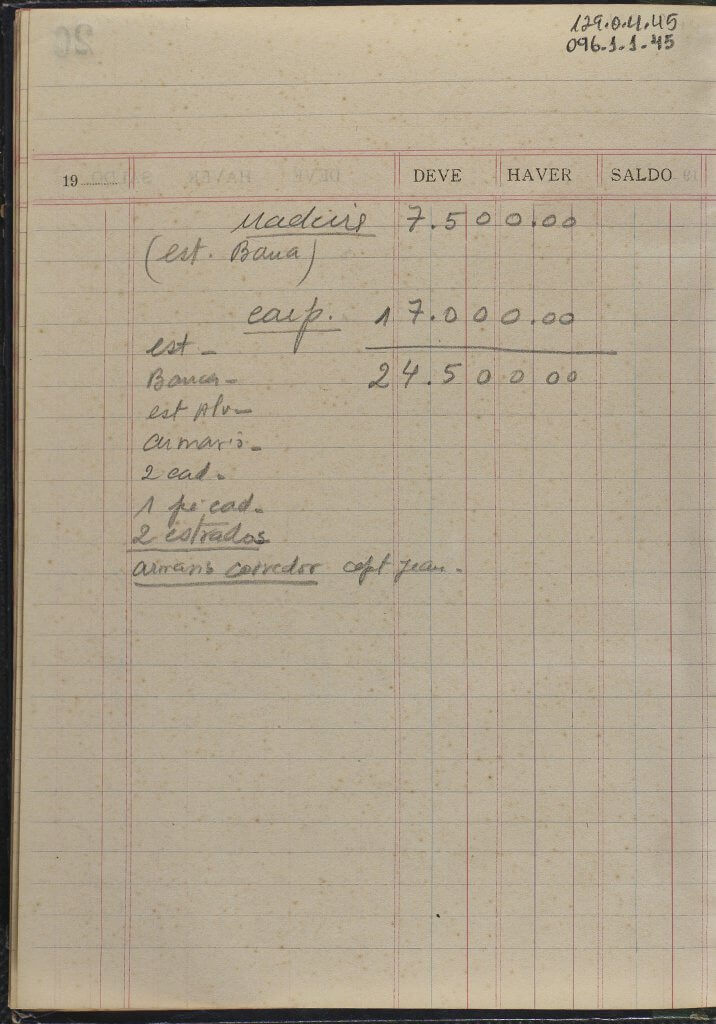 129.0.4.45
096.1.1-45
19........ DEVE HAVER SALDO
Madeire 7.500.00
(est. Bana)
carp. 17.000.00
est -
Banca - 24.500 00
est Alv-
armario -
2 cad.
1 pé cad.
2 estrados
armario corredor apt Jean.